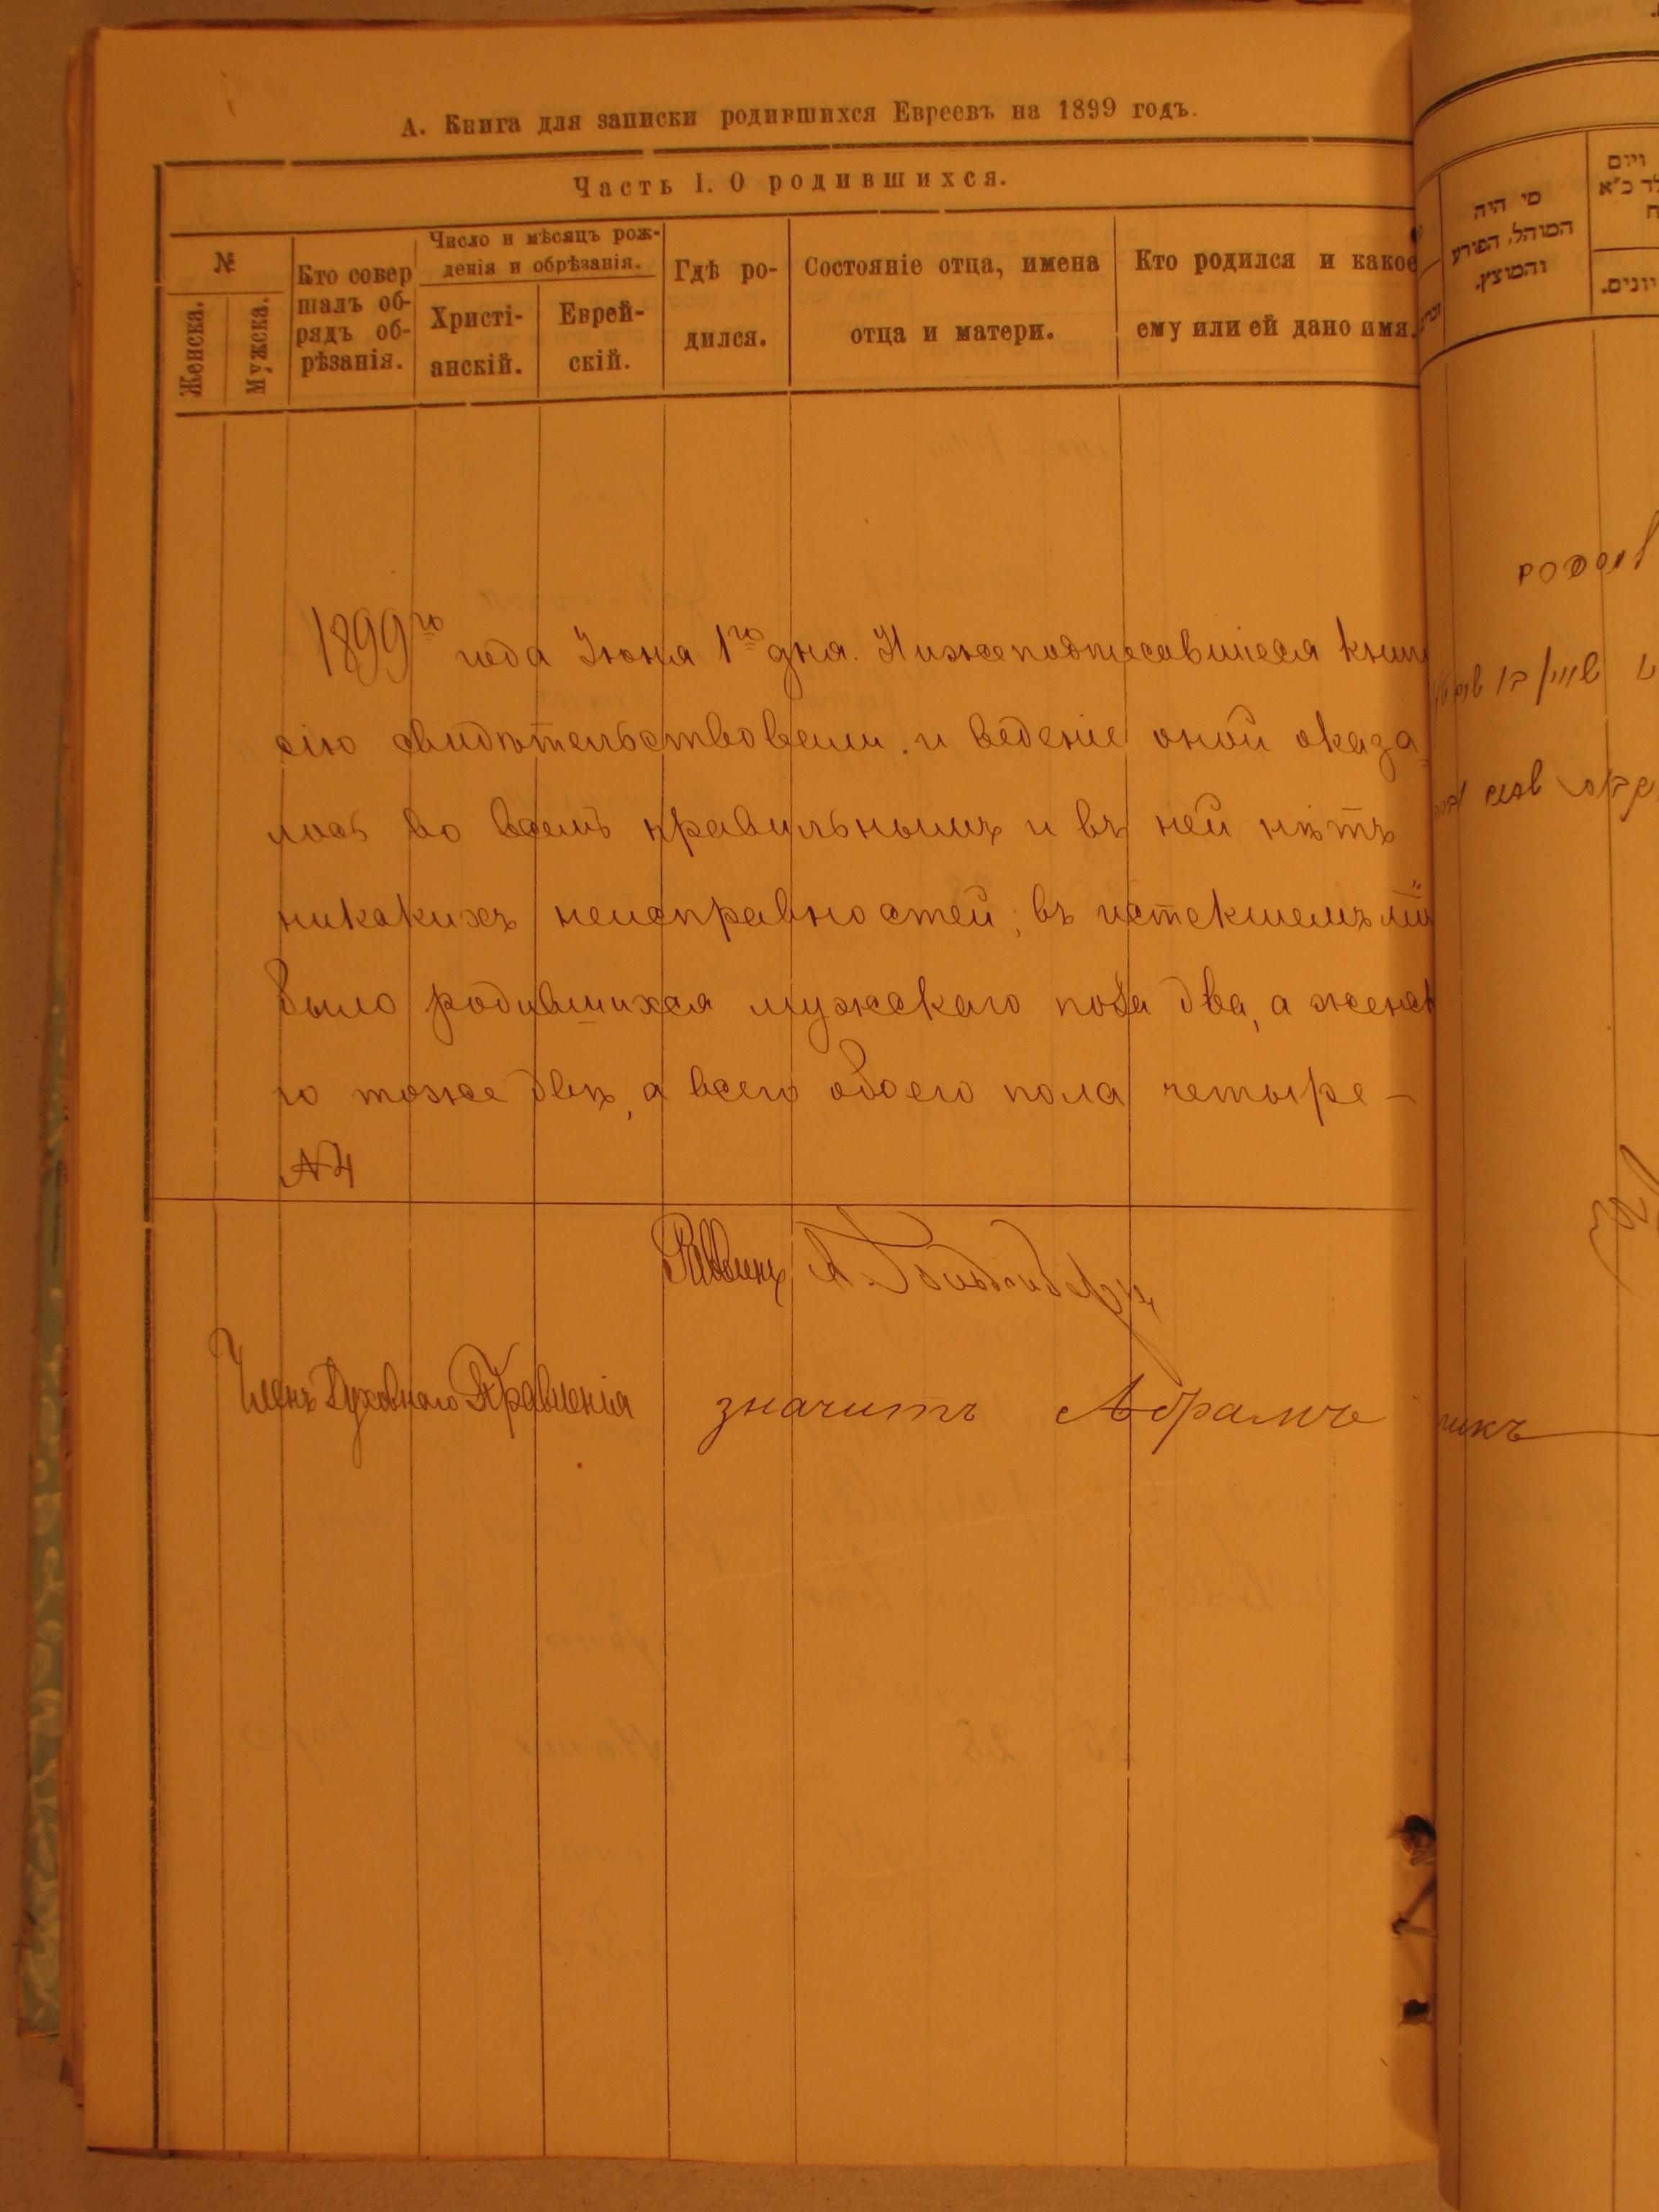 А. Книга для записки родившихся Евреевъ на 1899 годъ.
Часть I. О родившихся.
№
Женска.
Мужска.
Кто совер
шалъ об-
рядъ об-
рѣзанія.
Число и мѣсяцъ рож-
денія и обрѣзанія.
Христі-
анскій.
Еврей-
скій.
Гдѣ ро-
дился.
Состояніе отца, имена
отца и матери.
Кто родился и какое
ему или ей дано имя.
1899го года Іюня 1го дня. Нижеподписавшіеся
сію свидѣтельствовали и веденіе оной оказа=
лось во всемъ правильнымъ и въ ней нѣтъ
никакихъ неисправностей; въ истекшемъ
было родившихся мужскаго пола два, а женск
го тоже двѣ, а всего обоего пола четыре –
№4
Раввинъ А.
Членъ Духовнаго Правленія значитъ Абрамъ
מי היה
המוהל, הפורע
והמוצץ.